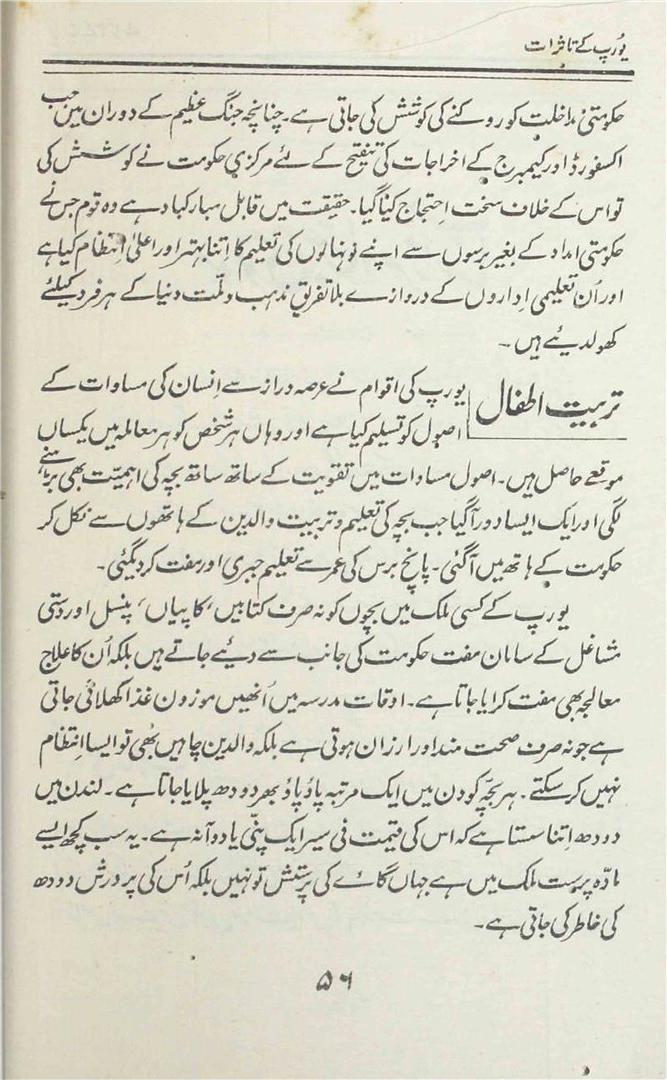 یورپ کے تاثرات
حکومتی مداخلت کو روکنے کی کوشش کی جاتی ہے۔ چنانچہ جنگ عظیم کے دوران میں جب
اکسفورڈ اور کیمبرج کے اخراجات کی تنقیح کے لئے مرکزی حکومت نے کوشش کی
تو اس کے خلاف سخت احتجاج کیا گیا۔ حقیقت میں قابل مبارکباد ہے وہ قوم جس نے
حکومتی امداد کے بغیر برسوں سے اپنے نونہالوں کی تعلیم کا اِتنا بہتر اور اعلیٰ اِنتظام کیا ہے
اور اُن تعلیمی اِداروں کے دروازے بلا تفریق مذہب و ملّت دنیا کے ہر فرد کیلئے
کھولدیئے ہیں۔
تربیت اطفال
یورپ کی اقوام نے عرصہ دراز سے اِنسان کی مساوات کے
اصول کو تسلیم کیا ہے اور وہاں ہر شخص کو ہر معاملہ میں یکساں
موقعے حاصل ہیں۔ اصول مساوات میں تقویت کے ساتھ ساتھ بچہ کی اہمیّت بھی بڑھنے
لگی اور ایک ایسا دور آگیا جب بچہ کی تعلیم و تربیت والدین کے ہاتھوں سے نکل کر
حکومت کے ہاتھ میں آگئی۔ پانچ برس کی عمر سے تعلیم جبری اور مفت کردیگئی۔
یورپ کے کسی ملک میں بچوں کو نہ صرف کتابیں، کاپیاں، پنسل اور دستی
مشاغل کے سامان مفت حکومت کی جانب سے دیئے جاتے ہیں بلکہ اُن کا علاج
معالجہ بھی مفت کرایا جاتا ہے۔ اوقات مدرسہ میں اُنھیں موزون غذا کھلائی جاتی
ہے جو نہ صرف صحت مند اور ارزان ہوتی ہے بلکہ والدین چاہیں بھی تو ایسا اِنتظام
نہیں کرسکتے۔ ہر بچّہ کو دن میں ایک مرتبہ پاؤ پاؤ بھر دودھ پلایا جاتا ہے۔ لندن میں
دودھ اِتنا سستا ہے کہ اس کی قیمت فی سیر ایک پنّی یا دو آنہ ہے۔ یہ سب کچھ ایسے
مادّہ پرست ملک میں ہے جہاں گائے کی پرستش تو نہیں بلکہ اُس کی پرورش دودھ
کی خاطر کی جاتی ہے۔
۵۶